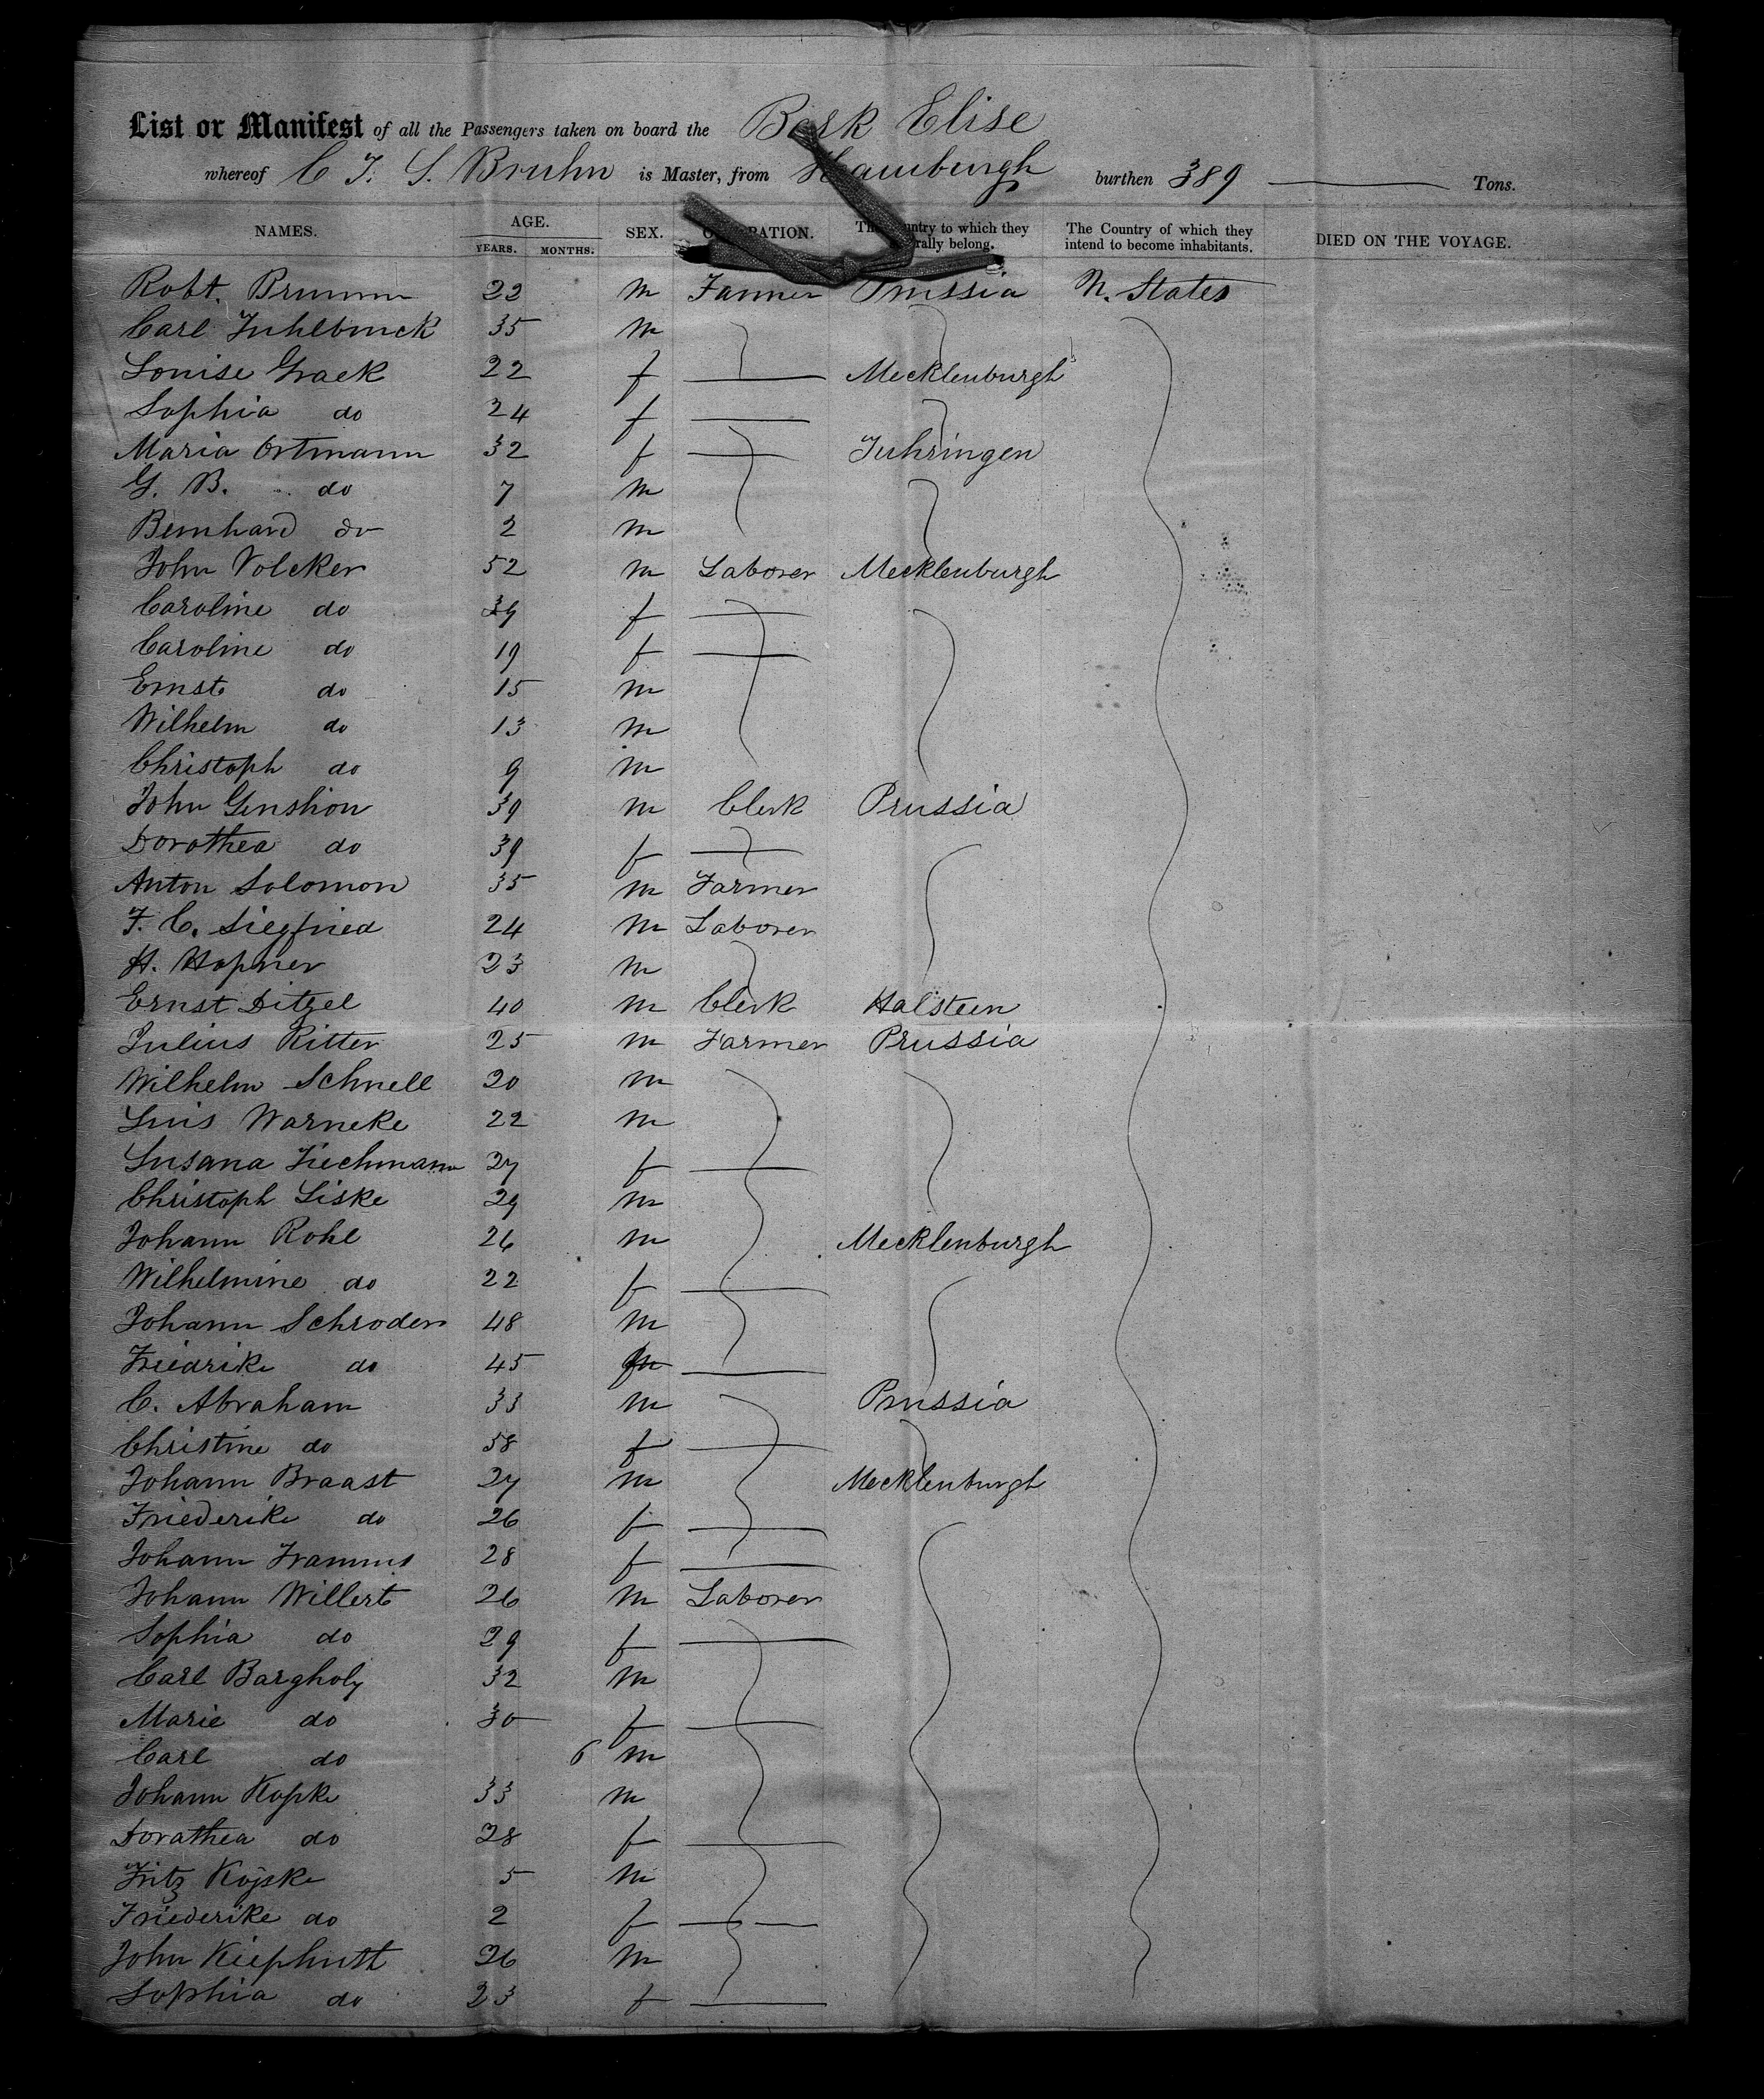 List or Manifest of all the Passengers taken on board the Bark Elise
whereof C J. S. Bruhn is Master, from Hamburgh burthen 389 Tons.
NAMES. AGE. YEARS. MONTHS. SEX. OCCUPATION. The Country to which they severally belong. The Country of which they intend to become inhabitants. DIED ON THE VOYAGE.
Robt. Brumm 22 m Farmer Prussia U. States
Carl 35 m
Louise Graek 22 f Mecklenburgh
Sophia do 24 f
Maria Ortmann 32 f Tuhringen
G. B. do 7 m
Bernhard do 2 m
John Volcker 52 m Laborer Mecklenburgh
Caroline do 39 f
Caroline do 19 f
Ernst do 15 m
Wilhelm do 13 m
Christoph do 9 m
John Genshion 39 m Clerk Prussia
Dorothea do 39 f
Anton Solomon 35 m Farmer
F. C. Siegfried 24 m Laborer
H. Hopner 23 m
Ernst Ditzel 40 m Clerk Halsteen
Julius Ritter 25 m Farmer Prussia
Wilhelm Schnell 20 m
Luis Warneke 22 m
Susana Tiechmann 27 f
Christoph Liske 29 m
Johann Rohl 26 m Mecklenburgh
Wilhelmine do 22 f
Johann Schroder 48 m
Friedrike do 45 f
C. Abraham 33 m Prussia
Christine do 58 f
Johann Braast 27 m Mecklenburgh
Friederike do 26 f
Johann 28 f
Johann Willert 26 m Laborer
Sophia do 29 f
Carl Bargholz 32 m
Marie do 30 f
Carl do 6 m
Johann Kopke 33 m
Dorathea do 28 f
Fritz Kopke 5 m
Friederike do 2 f
John Kiephutt 26 m
Sophia do 23 f